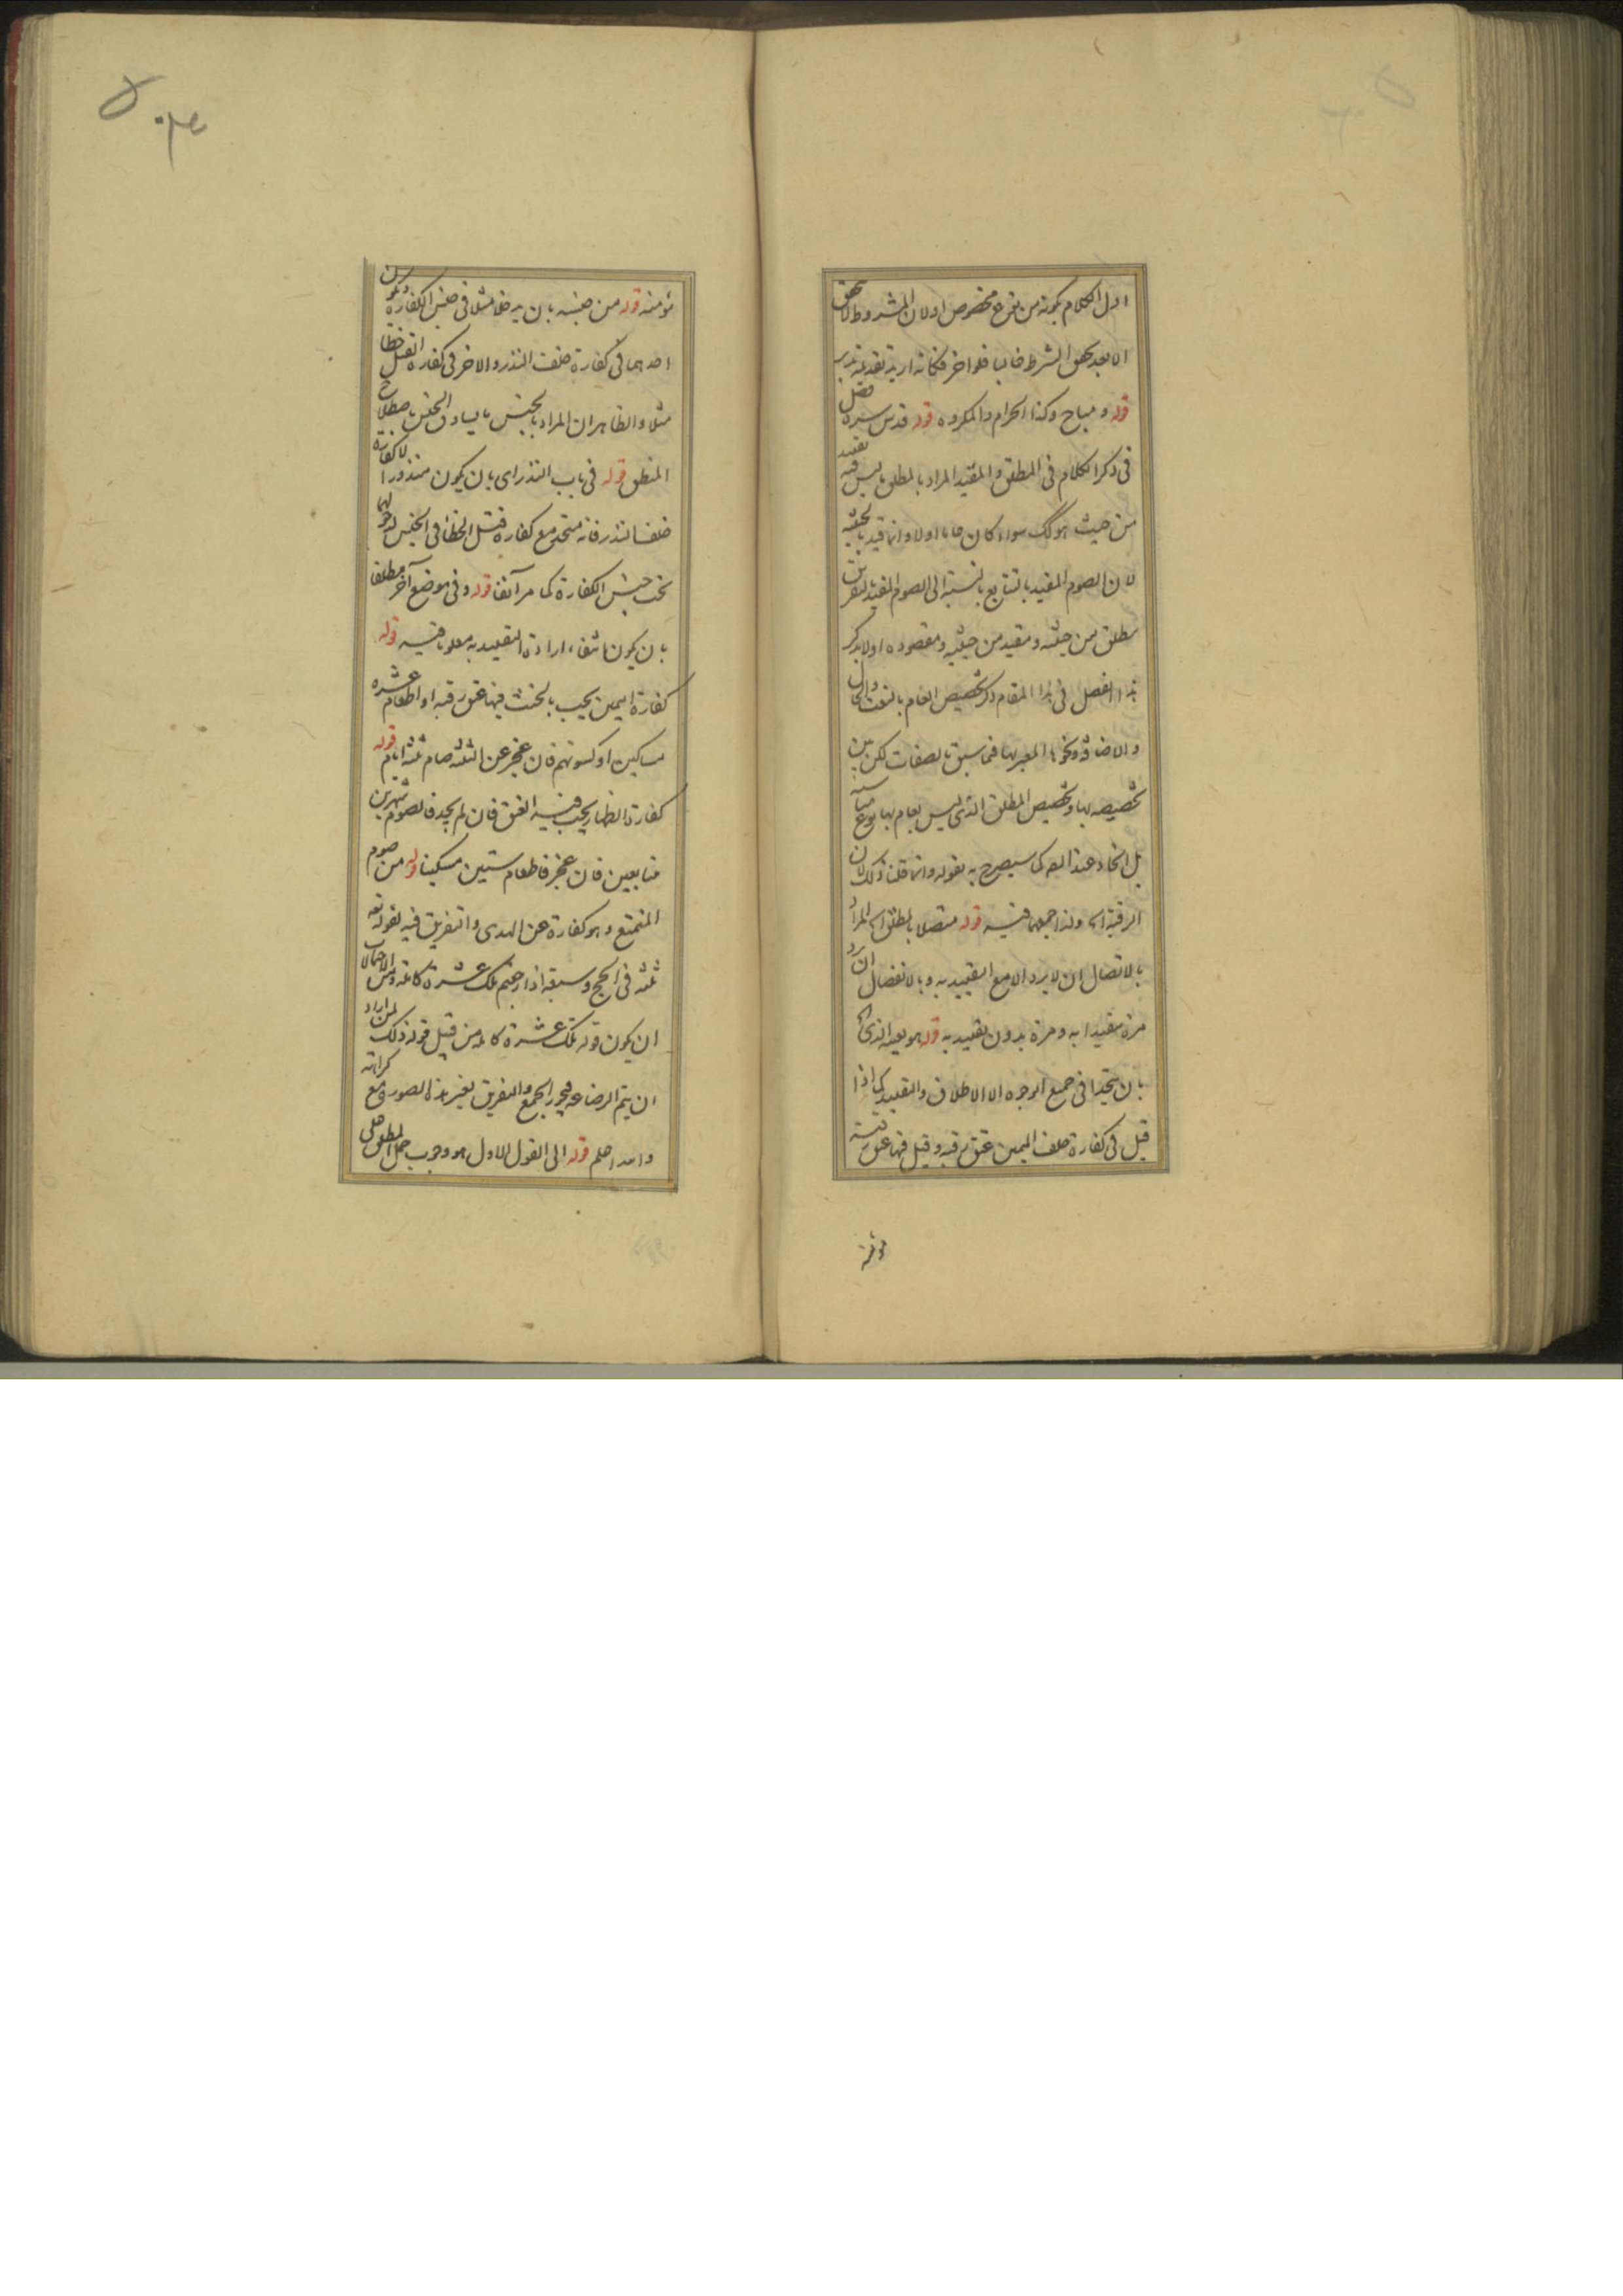 اول الكلام بكونه من نوع مخصوص اولان المشروط لا يتحقق
الا بعد تحقق الشرط غالبا فلو اخر فكانه اريد تقديمه تدبر
قوله ومباح وكذا الحرام والمكروه قوله قدس سره فصل
فى ذكر الكلام فى المطلق والمقيد المراد بالمطلق ما ليس فيه تقييد
من حيث هو كك سواء كان عاما اولا وانما قيد بالحيثية
لان الصوم المقيد بالتتابع بالنسبة الى الصوم المقيد بالتفريق
مطلق من حيثية ومقيد من حيثية ومقصوده اولا بذكر
هذا الفصل فى هذا المقام ذكر تخصيص العام بالنعت والحال
والاضافة ونحوها المعبر بها فيما سبق بالصفات لكن بين
تخصيصه بها وتخصيص المطلق الذى ليس بعام بها نوع مناسبة
بل اتحاد عند المص كما سيصرح به بقوله وانما قلنا ذلك لان
الرقبة اه ولذا جمعهما فيه قوله متصلا بالمطلق اه المراد
بالاتصال ان لا يرد الا مع التقييد به وبالانفصال ان يرد
مرة مقيدا به ومرة بدون تقييد به قوله هو بعينه الذى اه
بان يتحدا فى جميع الوجوه الا الاطلاق والتقييد كما اذا
قيل فى كفارة حلف اليمين عتق رقبة وقيل فيها عتق رقبة
مؤمنة
مؤمنة قوله من جنسه بان يدخلا مثلا فى جنس الكفارة ويكون
احدهما فى كفارة خلف النذر والاخر فى كفارة القتل خطأ
مثلا والظاهر ان المراد بالجنس ما يساوق الجنس باصطلاح
المنطق قوله فى باب النذر اى بان يكون منذورا لا كفارة
خلف النذر فانه متحد مع كفارة قتل الخطأ فى الجنس لدخولهما
تحت جنس الكفارة كما مر آنفا قوله وفى موضع آخر مطلقا
بان يكون انتفاء ارادة التقييد به معلوما فيه قوله
كفارة اليمين يجب بالحنث فيها عتق رقبة او اطعام عشرة
مساكين او كسوتهم فان عجز عن الثلثة صام ثلثة ايام قوله
كفارة الظهار يجب فيه العتق فان لم يجد فالصوم شهرين
متتابعين فان عجز فاطعام ستين مسكينا قوله من صوم
المتمتع وهو كفارة عن الهدى والتفريق فيه لقوله تعه
ثلثة فى الحج وسبعة اذا رجعتم تلك عشرة كاملة ومن الاحتمالات
ان يكون قوله تلك عشرة كاملة من قبيل قوله ذلك لمن اراد
ان يتم الرضاعة فيجوز الجمع والتفريق بغير هذه الصورة مع كراهة
والله اعلم قوله الى القول الاول هو وجوب حمل المطلق على